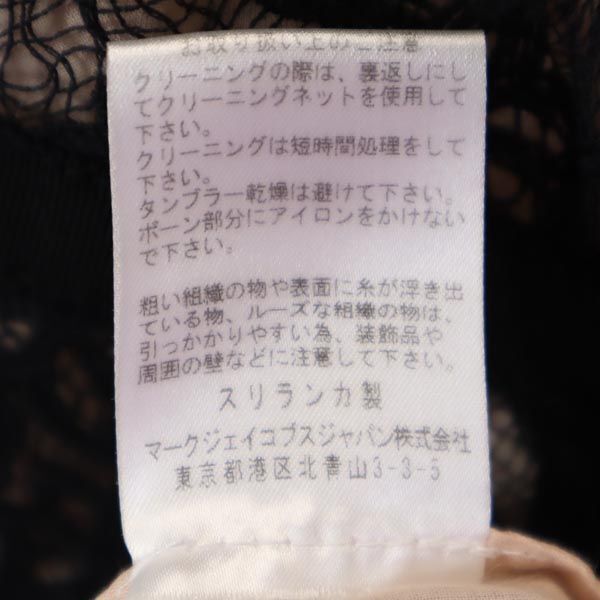 お取り扱い上のご注意
クリーニングの際は、裏返しにし
てクリーニングネットを使用して
下さい。
クリーニングは短時間処理をして
下さい。
タンブラー乾燥は避けて下さい。
ボーン部分にアイロンをかけない
で下さい。
粗い組織の物や表面に糸が浮き出
ている物、ルーズな組織の物は、
引っかかりやすい為、装飾品や
周囲の壁などに注意して下さい。
スリランカ製
マークジェイコブスジャパン株式会社
東京都港区北青山3-3-5